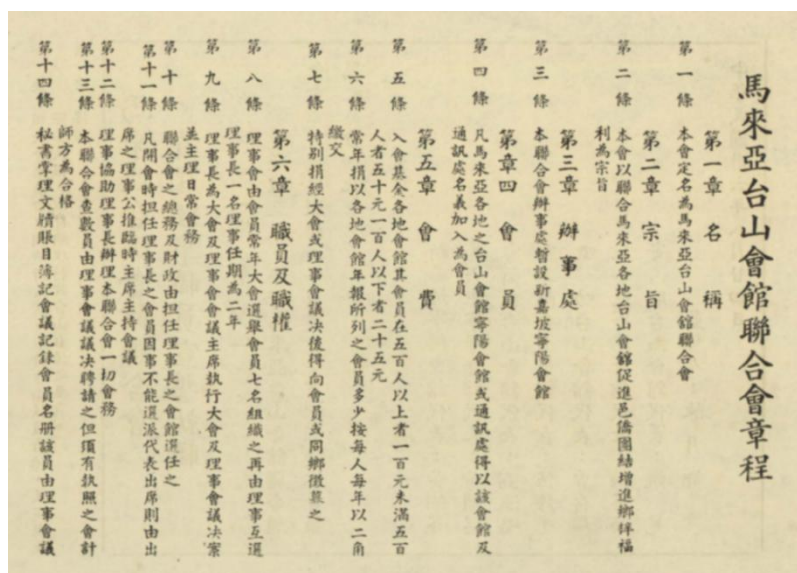 馬來亞台山會館聯合會章程
第一章 名稱
第一條 本會定名為馬來亞台山會館聯合會
第二章 宗旨
第二條 本會以聯合馬來亞各地台山會館促進邑僑團結增進鄉僑福
利為宗旨
第三章 辦事處
第三條 本聯合會辦事處暫設新嘉坡寧陽會館
第章四 會員
第四條 凡馬來亞各地之台山會館寧陽會館或通訊處得以該會館及
通訊處名義加入為會員
第五章 會費
第五條 入會基金各地會館其會員在五百人以上者一百元未滿五百
人者五十元一百人以下者二十五元
第六條 常年捐以各地會館年報所列之會員多少按每人每年以二角
繳交
第七條 特別捐經大會或理事會議決後得向會員或同鄉徵募之
第六章 職員及職權
第八條 理事會由會員常年大會選舉會員七名組織之再由理事互選
理事長一名理事任期為二年
第九條 理事長為大會及理事會會議主席執行大會及理事會議決案
並主理日常會務
第十條 聯合會之總務及財政由担任理事長之會館選任之
第十一條 凡開會時担任理事長之會員因事不能選派代表出席則由出
席之理事公推臨時主席主持會議
第十二條 理事協助理事長辦理本聯合會一切會務
第十三條 本聯合會查數員由理事會議議决聘請之但須有執照之會計
師方為合格
第十四條 秘書掌理文牘賬目簿記會議記錄會員名册該員由理事會議